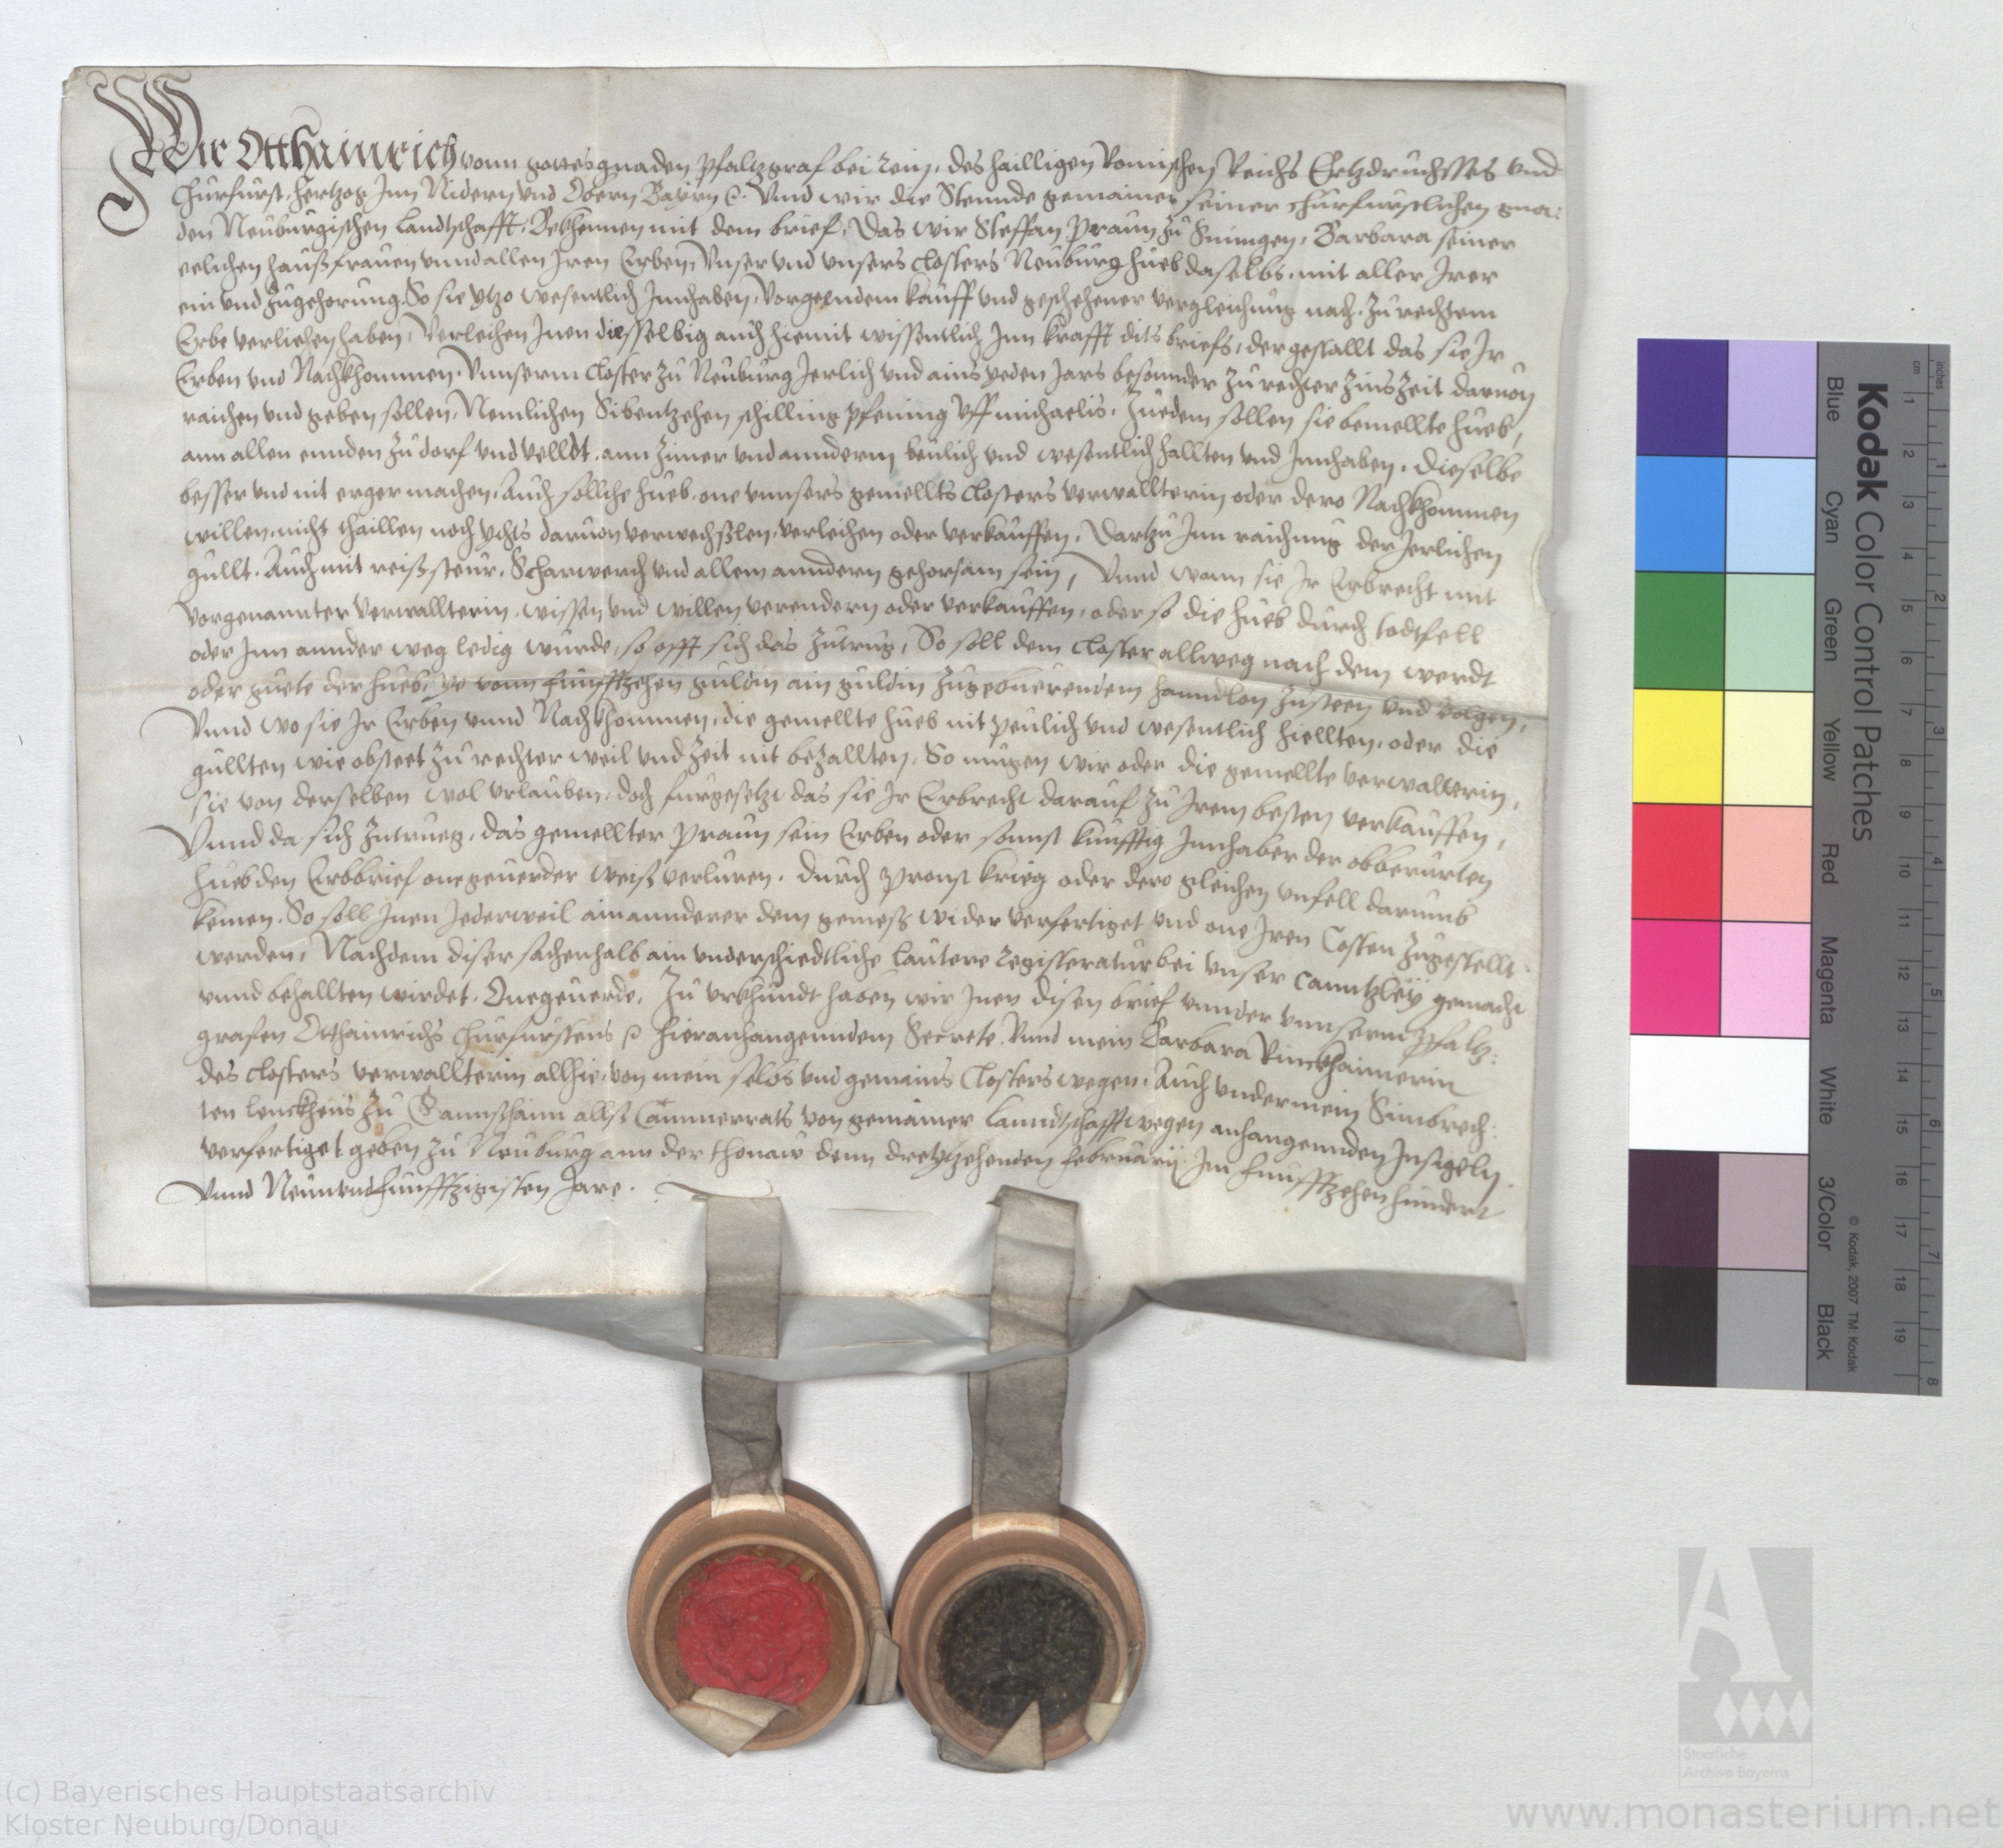 Wir Ottheinrich vonn gottes gnaden Pfaltzgraf bei Rein, des hailligen Romischen Reichs Ertzdruchsses und
Churfürst, Hertzog Inn Nidern und Obern Bayrn &c. Unnd wir die Stennde gemainer seiner churfürstlichen gna:
den Neuburgischen Landtschafft, Bekhennen mit dem brief, Das wir Steffan Praun zu, Barbara seiner
eelichen haußfrauen unnd allen Iren Erben, Unser und unsers closters Neuburg hueb daselbs, mit aller Irer
ein und zugehorung, So sie ytzo wesentlich Innhaben, Vorgeendem kauff und geschehener vergleichung nach, zu rechtem
Erbe verliehen haben, Verleihen Inen dieselbig auch hiemit wissentlich Inn krafft dits briefs, der gestallt das sie Ir
Erben und Nachkhommen, Unnserm Closter zu Neuburg Jerlich und ains yeden Jars besonnder zu rechter Zins Zeit daruon
raichen und geben sollen, Nemlichen Sibentzehen schilling pfening Uff michaelis. Zuedem sollen sie bemellte hueb,
ann allen ennden zu dorf und velldt, ann Zimer und annderm beulich und wesentlich hallten und Innhaben. dieselbe
besser und nit erger machen, Auch solliche hueb, one unnsers gemellts Closters verwallterin oder dero Nachkhommen
willen, nicht thaillen noch ychts daruon verwechßlen, verleihen oder verkauffen, Dartzu Inn raichung der Jerlichen
gullt, Auch mit reiß, steur, Scharwerch und allem anndern gehorsam sein, Unnd wann sie Ir Erbrecht mit
vorgenannter verwallterin wissen und willen verendern oder verkauffen, oder so die hueb durch todtfell
oder Inn annder weg ledig wurde, so offt sich das zutrug, So soll dem Closter allweg nach dem werdt
oder guete der hueb, ye vonn funfftzehen guldin ain guldin zugebuerendem hanndlon zusteen und volgen,
Unnd wo sie Ir Erben unnd Nachkhommen, die gemellte hueb nit peulich und wesentlich hiellten, oder die
gullten wie obsteet zu rechter weil und Zeit nit bezallten, So mugen wir oder die gemellte verwalterin,
sie von derselben wol urlauben, doch furgesetzt das sie Ir Erbrecht darauf zu Irem besten verkauffen,
Unnd da sich zutrueg, das gemellter Praun sein Erben oder sonnst kunfftig Innhaber der obberurten
hueb den Erbbrief onegeuerder weiß verluren, durch prunst krieg oder dero gleichen unfell darumb
kemen, So soll Inen Jederweil ain annderer dem gemeß wider verfertiget und one Iren Costen zugestellt
werden, Nachdem diser sachenhalb ain underschiedtliche lautere Registeratur bei unser Canntzley gemacht
unnd behallten wirdet. Onegeuerde, Zu urkhundt haben wir Inen disen brief unnder unnserm Pfaltz:
grafen Otthainrichs Churfürstens &c hieranhangenndem Secrete. Unnd mein Barbara Rinckhaimerin
des closters verwallterin allhie, von mein selbs und gemains Closters wegen, Auch undermein Simbrech:
ten Lenckhens zu allß Cammerrats von gemainer Lanndtschafft wegen anhangennden Insigeln.
verfertiget geben zu Neuburg ann der thonaw denn dreytzehenden february Im funfftzehenhundert
Unnd Neunundfunfftzigisten Jare.
Kodak Color Control Patches
Blue Cyan Green Yellow Red Magenta White 3/Color Black
© Kodak, 2007 TM: Kodak
cm 1 2 3 4 5 6 7 8 9 10 11 12 13 14 15 16 17 18 19
inches 1 2 3 4 5 6 7 8
Staatliche
Archive Bayerns
(c) Bayerisches Hauptstaatsarchiv
Kloster Neuburg/Donau
www.monasterium.net